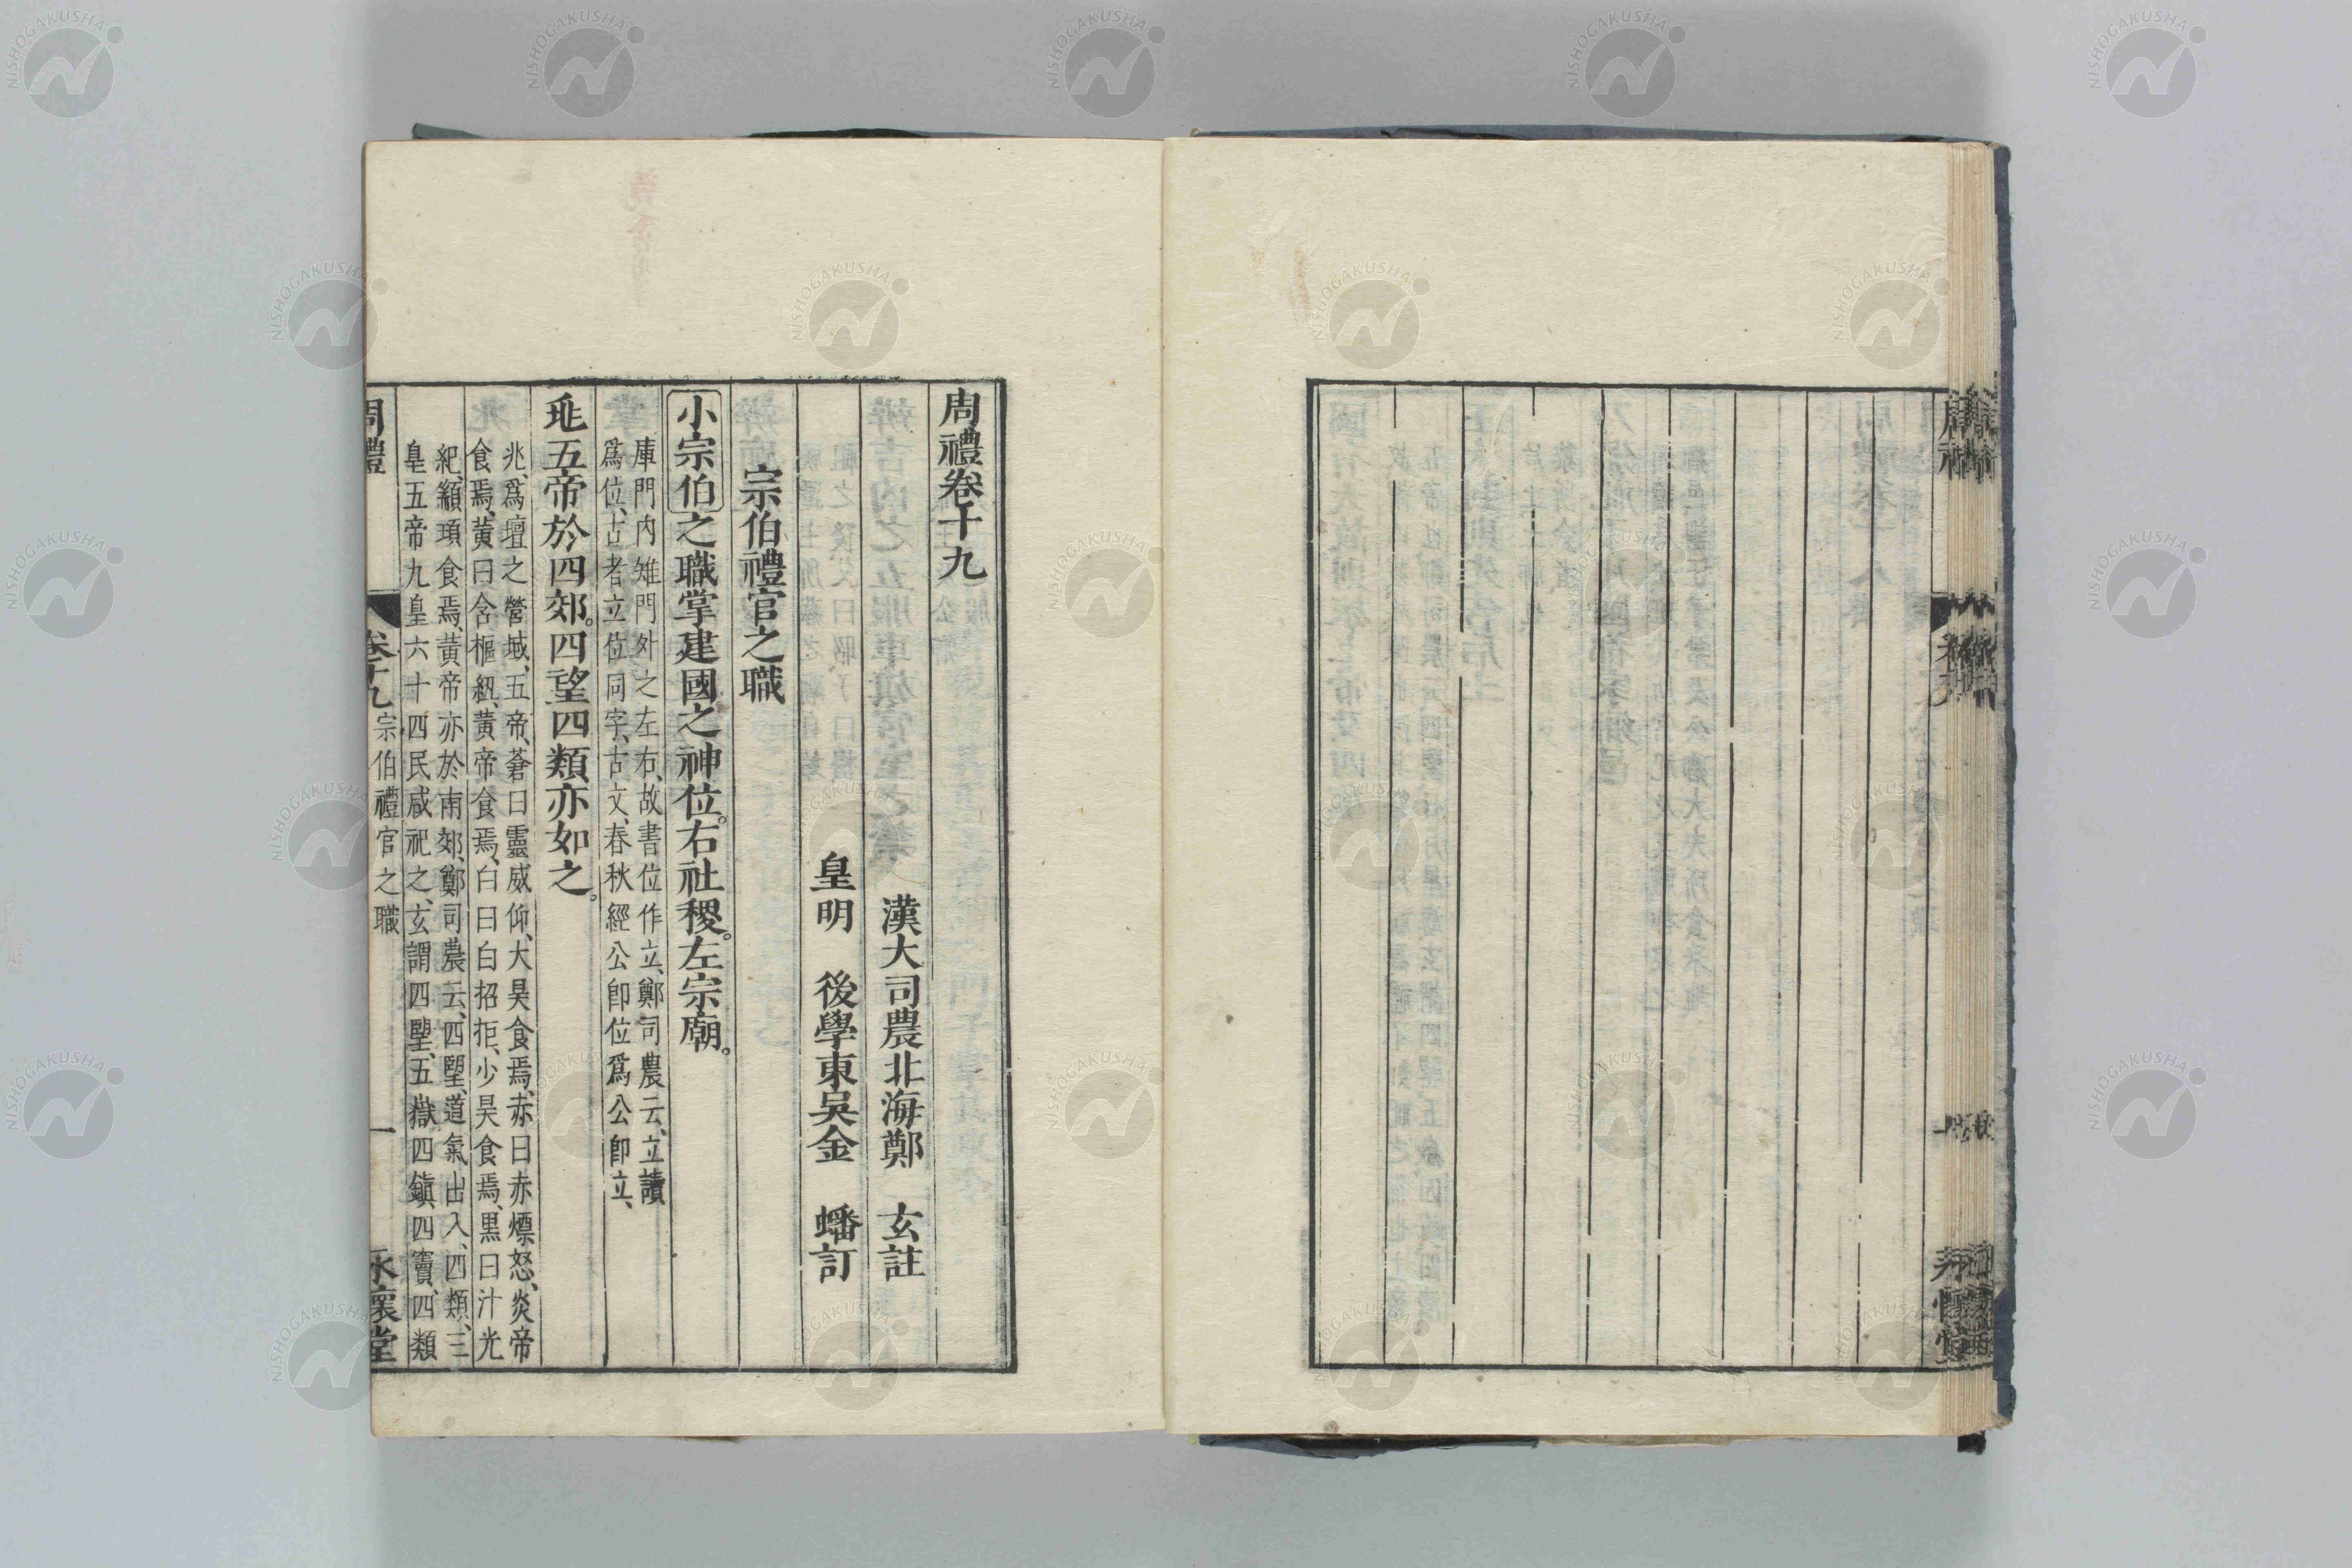 周禮卷十九
漢大司農北海鄭　玄註
皇明　後學東吳金　蟠訂
宗伯禮官之職
小宗伯之職掌建國之神位。右社稷。左宗廟。
庫門內雉門外之左右、故書位作立、鄭司農云、立讀
爲位、古者立位同字、古文、春秋經公卽位爲公卽立、
兆五帝於四郊。四望四類亦如之。
兆、爲壇之營域、五帝、蒼曰靈威仰、大昊食焉、赤曰赤熛怒、炎帝
食焉、黃曰含樞紐、黃帝食焉、白曰白招拒、少昊食焉、黑曰汁光
紀、顓頊食焉、黃帝亦於南郊、鄭司農云、四望、道氣出入、四類、三
皇五帝九皇六十四民咸祀之、玄謂四望、五嶽四鎮四竇、四類
周禮　卷十九　宗伯禮官之職　一　永懷堂
NISHOGAKUSHA